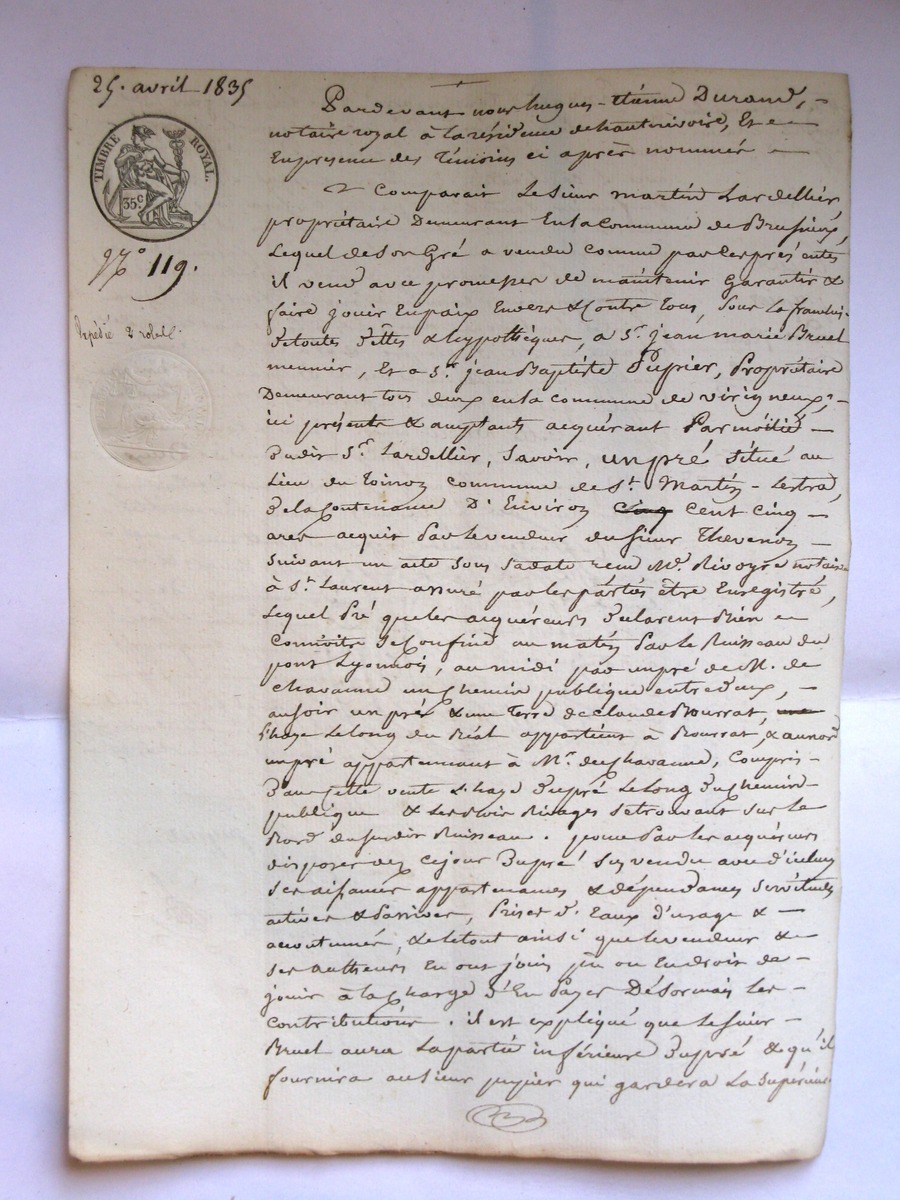 25. avril 1835
TIMBRE ROYAL.
35 c
N.° 119.
Expédié 2 roles
Pardevant nous hugues-etienne Durand, -
notaire royal à la résidence de hauterivoire, Et en
En presence des Témoins ci après nommés -
Comparait Le Sieur martin Lardellier
propriétaire Demeurant En la Commune de Brussieux,
Lequel de Son Gré a vendu comme par les présentes
il vend avec promesses de maintenir Garantir &
faire jouir En paix Envers & Contre Tous, Sous La franchise
de toutes dettes & hypothèques, a S.r jean marie Bruel
meunier, Et a S.r jean Baptiste Pupier, Propriétaire
Demeurant tous deux en la commune de virigneux, -
ici présents & acceptants acquérant Par moitié -
Dudit S.r Lardellier, Savoir, un pré situé au
Lieu du Toinon commune de S.t Martin-Lestra,
De la Contenance D'Environ Cinq Cent Cinq -
ares acquis Par le vendeur du Sieur Thevenon -
suivant un acte sous Sa date reçu M.e Rivoyre notaire
à S.t Laurent assuré par les parties être Enregistré,
Lequel Pré que les acquéreurs Déclarent Bien
Connoitre Se Confine au matin Par le Ruisseau du
pont Lyonnois, au midi par un pré de M. de
Chavanne un Chemin publique entre deux, -
au soir un pré & une Terre de Claude Bourrat,
L'haye Le Long du Biat appartient à Bourrat, & au nord
un pré appartenant à M.r de Chavanne, Compris -
Dans cette vente L'haye Du pré Le Long Du Chemin
publique & Les Rivages Se trouvant sur Le
Bord du Susdit Ruisseau. pour Par les acquéreurs
disposer dez ce jour Du pré Sus vendu avec d'iceluy
Ses aisances appartenances & dépendances Servitudes
actives & Passives, Prises d'Eaux d'usage &
accoutumés, & le tout ainsi que le vendeur & -
ses autheurs En ont joui pu ou En droit de -
jouir à la Charge d'En Payer Désormais Les -
Contributions. il est expliqué que Le Sieur -
Bruel aura La partie inférieure Du pré & qu'il
fournira au Sieur pupier qui gardera La Supérieure